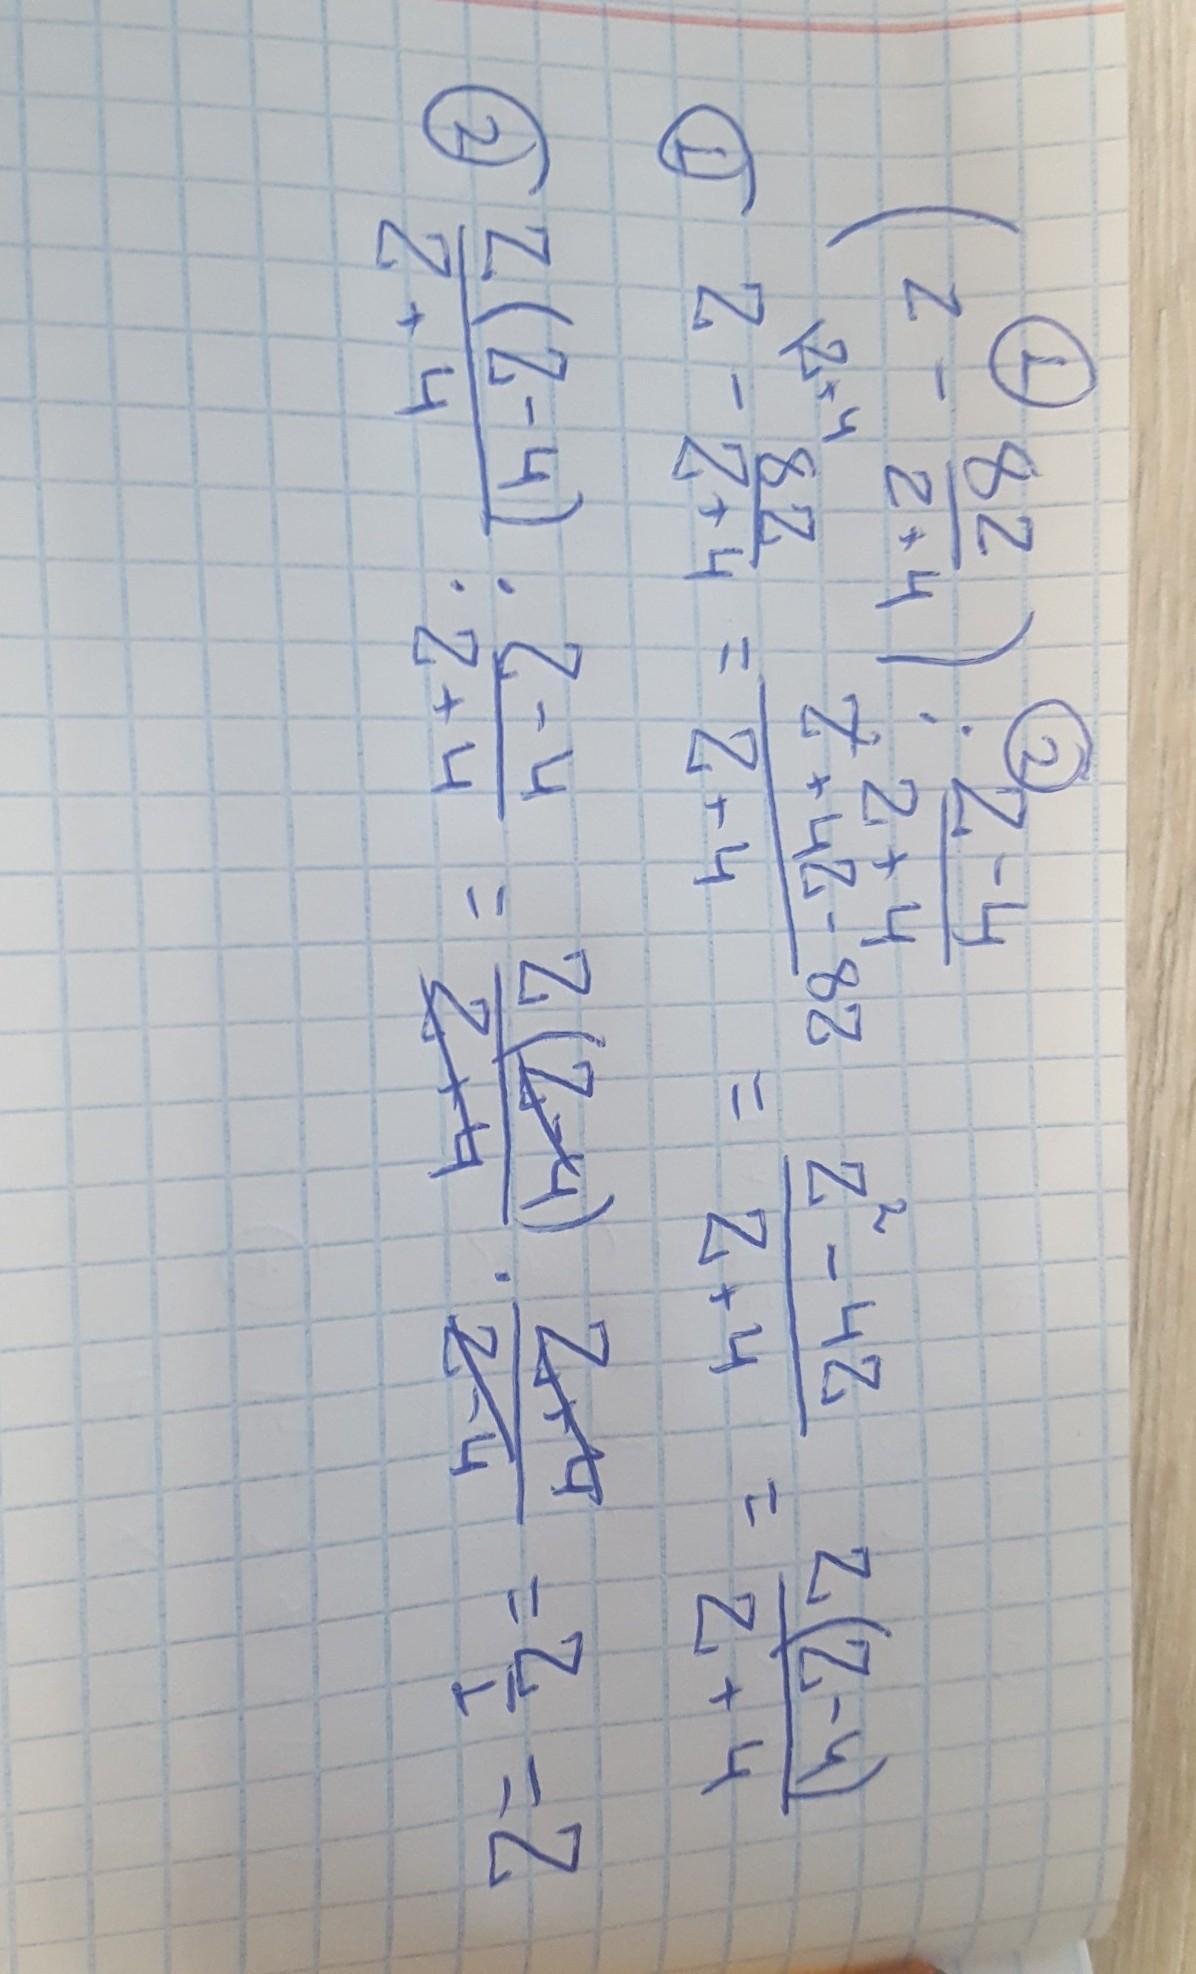 ① ②
(z - 8z/(z+4)) : (z-4)/(z+4)
① z^(\z+4) - 8z/(z+4) = (z²+4z-8z)/(z+4) = (z²-4z)/(z+4) = z(z-4)/(z+4)
② z(z-4)/(z+4) : (z-4)/(z+4) = z(z-4)/(z+4) · (z+4)/(z-4) = z/1 = z